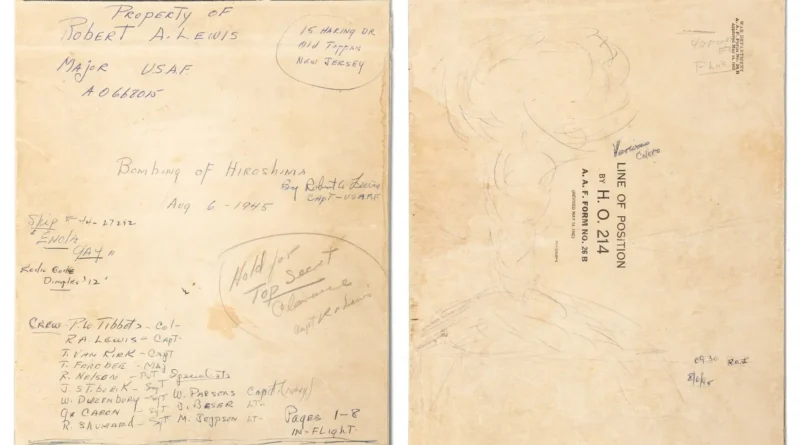 Property of
Robert A. Lewis
Major USAF
AO668015
15 Haring Dr
Old Tappan
New Jersey
Bombing of Hiroshima
By Robert A. Lewis
Capt - USAAF
Aug 6 - 1945
Ship
"Enola
Gay"
Radio Code
Dimples '12'
Hold for
Top Secret
Clearance
Capt
Crew - P.W. Tibbets - Col -
R A. Lewis - Capt -
T. Van Kirk - Capt
T. Ferebee - Maj
R. Nelson - Pvt
J. Stiborik - Sgt
Sgt
G R Caron - Sgt
R. Shumard - Sgt
Specialists
W. Parsons Capt (Navy)
J. Beser Lt -
M. Jeppson Lt -
Pages 1-8
In-Flight
WAR DEPARTMENT
A. A. F. Form No. 26 B
LINE OF POSITION
BY
H. O. 214
A. A. F. FORM NO. 26 B
09:30
8/6/45